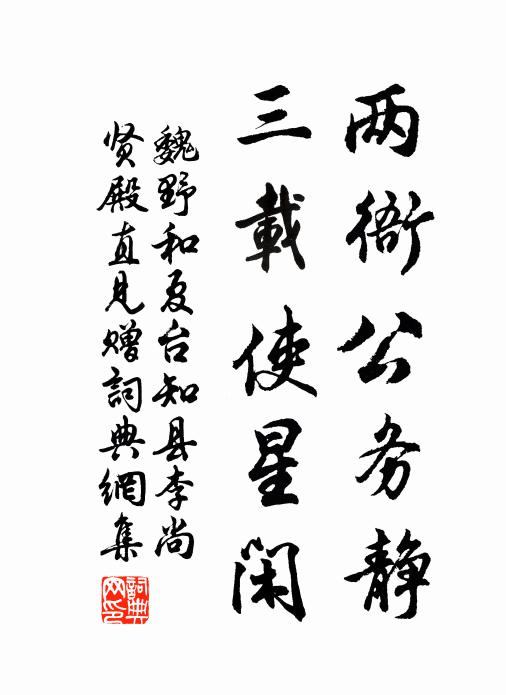 两衙公务静
三載使星闲
魏野和夏台知县李尚
贤殿直见赠詞典網集
詞典網印